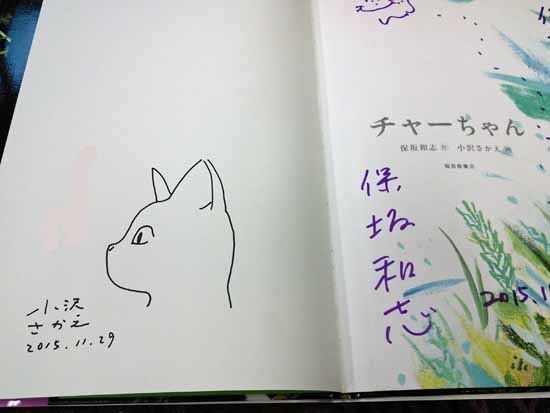 小沢
さかえ
2015.11.29
チャーちゃん
保坂和志 作 小沢さかえ 画
福音館書店
保坂和志
2015.1